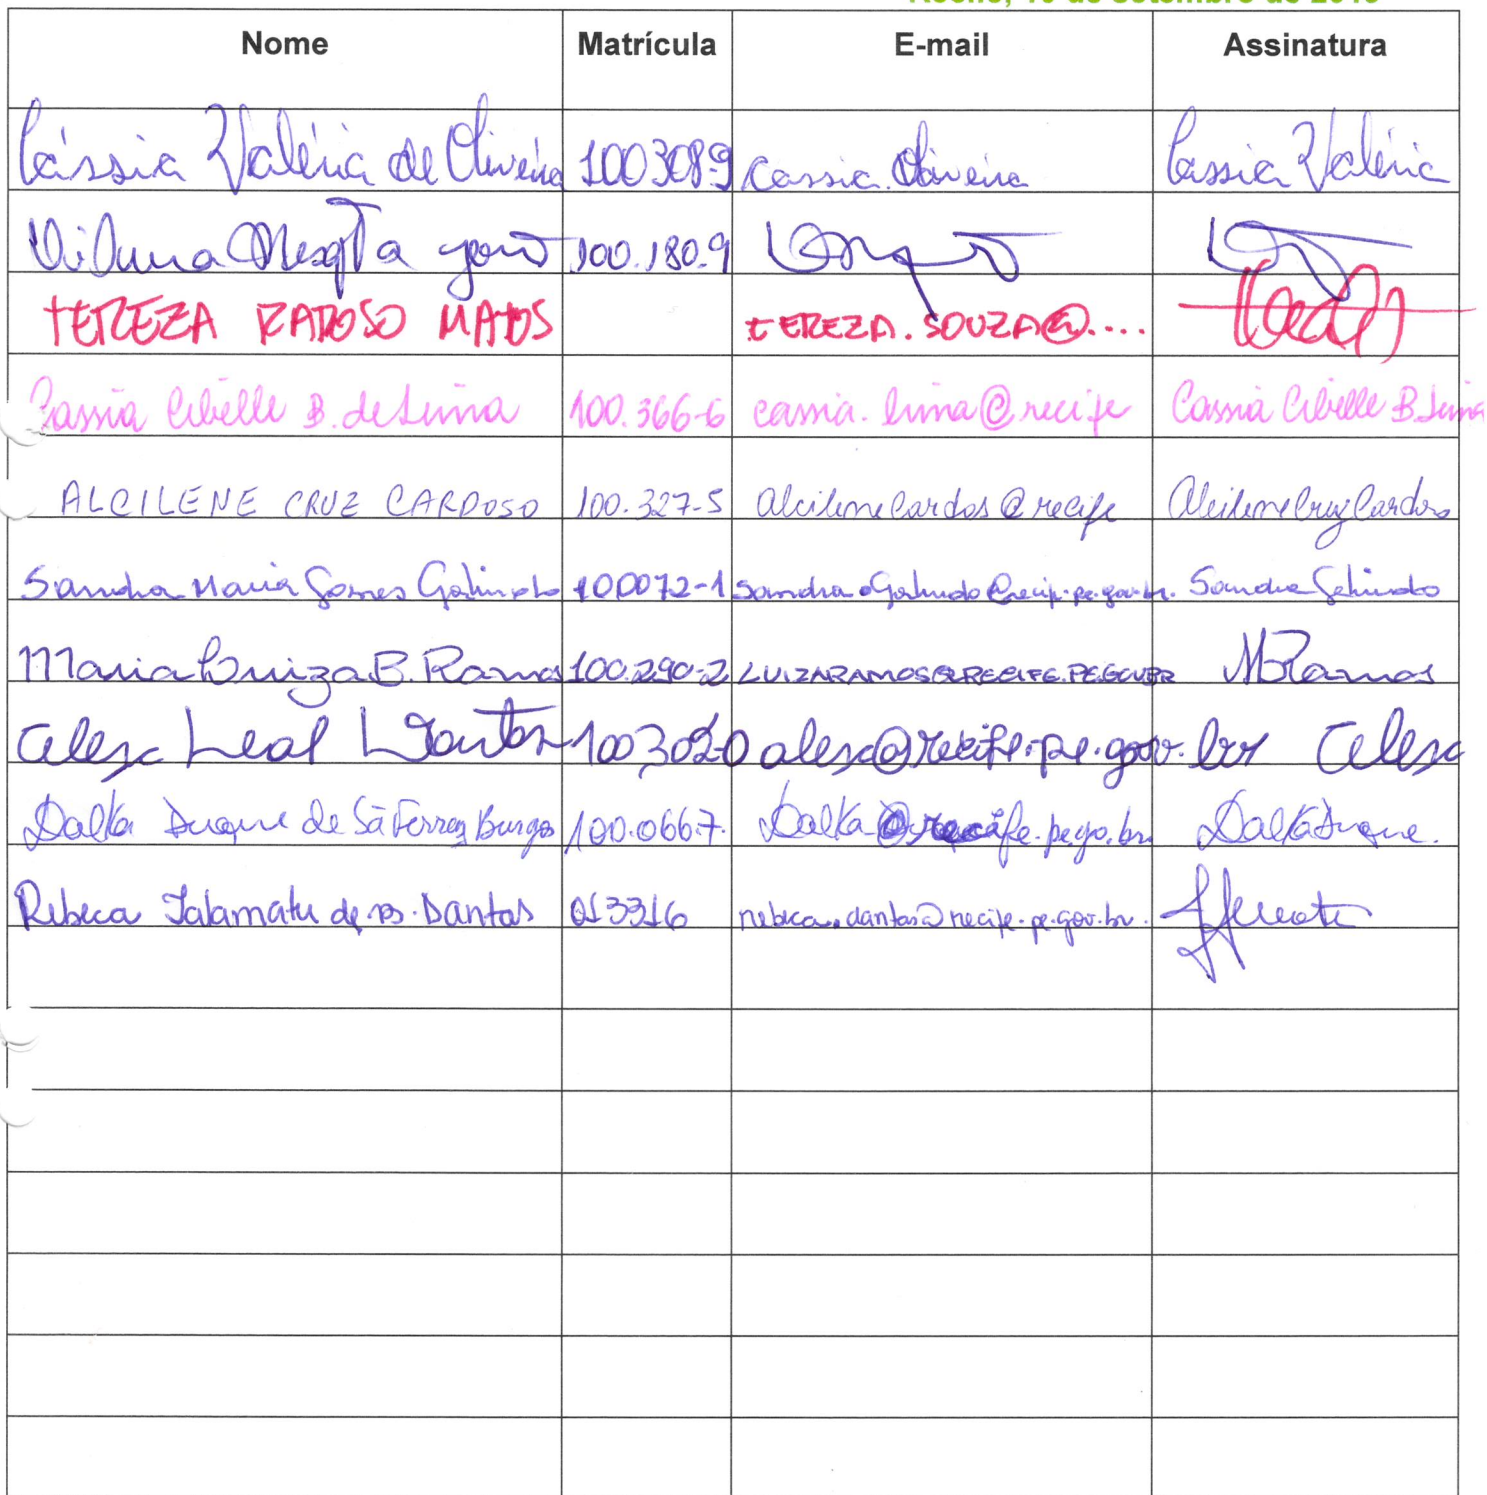 Nome Matrícula E-mail Assinatura
Cássia Valéria de Oliveira 1003089 cassia.Oliveira Cassia Valéria
100.180.9
TEREZA MATOS TEREZA.SOUZA@....
Cassia Cibelle B. de Lima 100.366-6 cassia.lima@recife Cassia Cibelle B Lima
ALCILENE CRUZ CARDOSO 100.327-5 alcilenecardos@recife Alcilene Cruz Cardoso
Sandra Maria Gomes Galindo 100072-1 Sandra.Galindo@recife.pe.gov.br. Sandra Galindo
Maria Luiza B. Ramos 100.290-2 LUIZARAMOS@RECIFE.PE.GOV.BR MBRamos
Leal 1003020 @recife.pe.gov.br
Dalka Duque de Sá Ferraz Burgo 100.0667. Dalka@recife.pe.go.br Dalka Duque.
Rebeca de B. Dantas 013316 rebeca.dantas@recife.pe.gov.br.